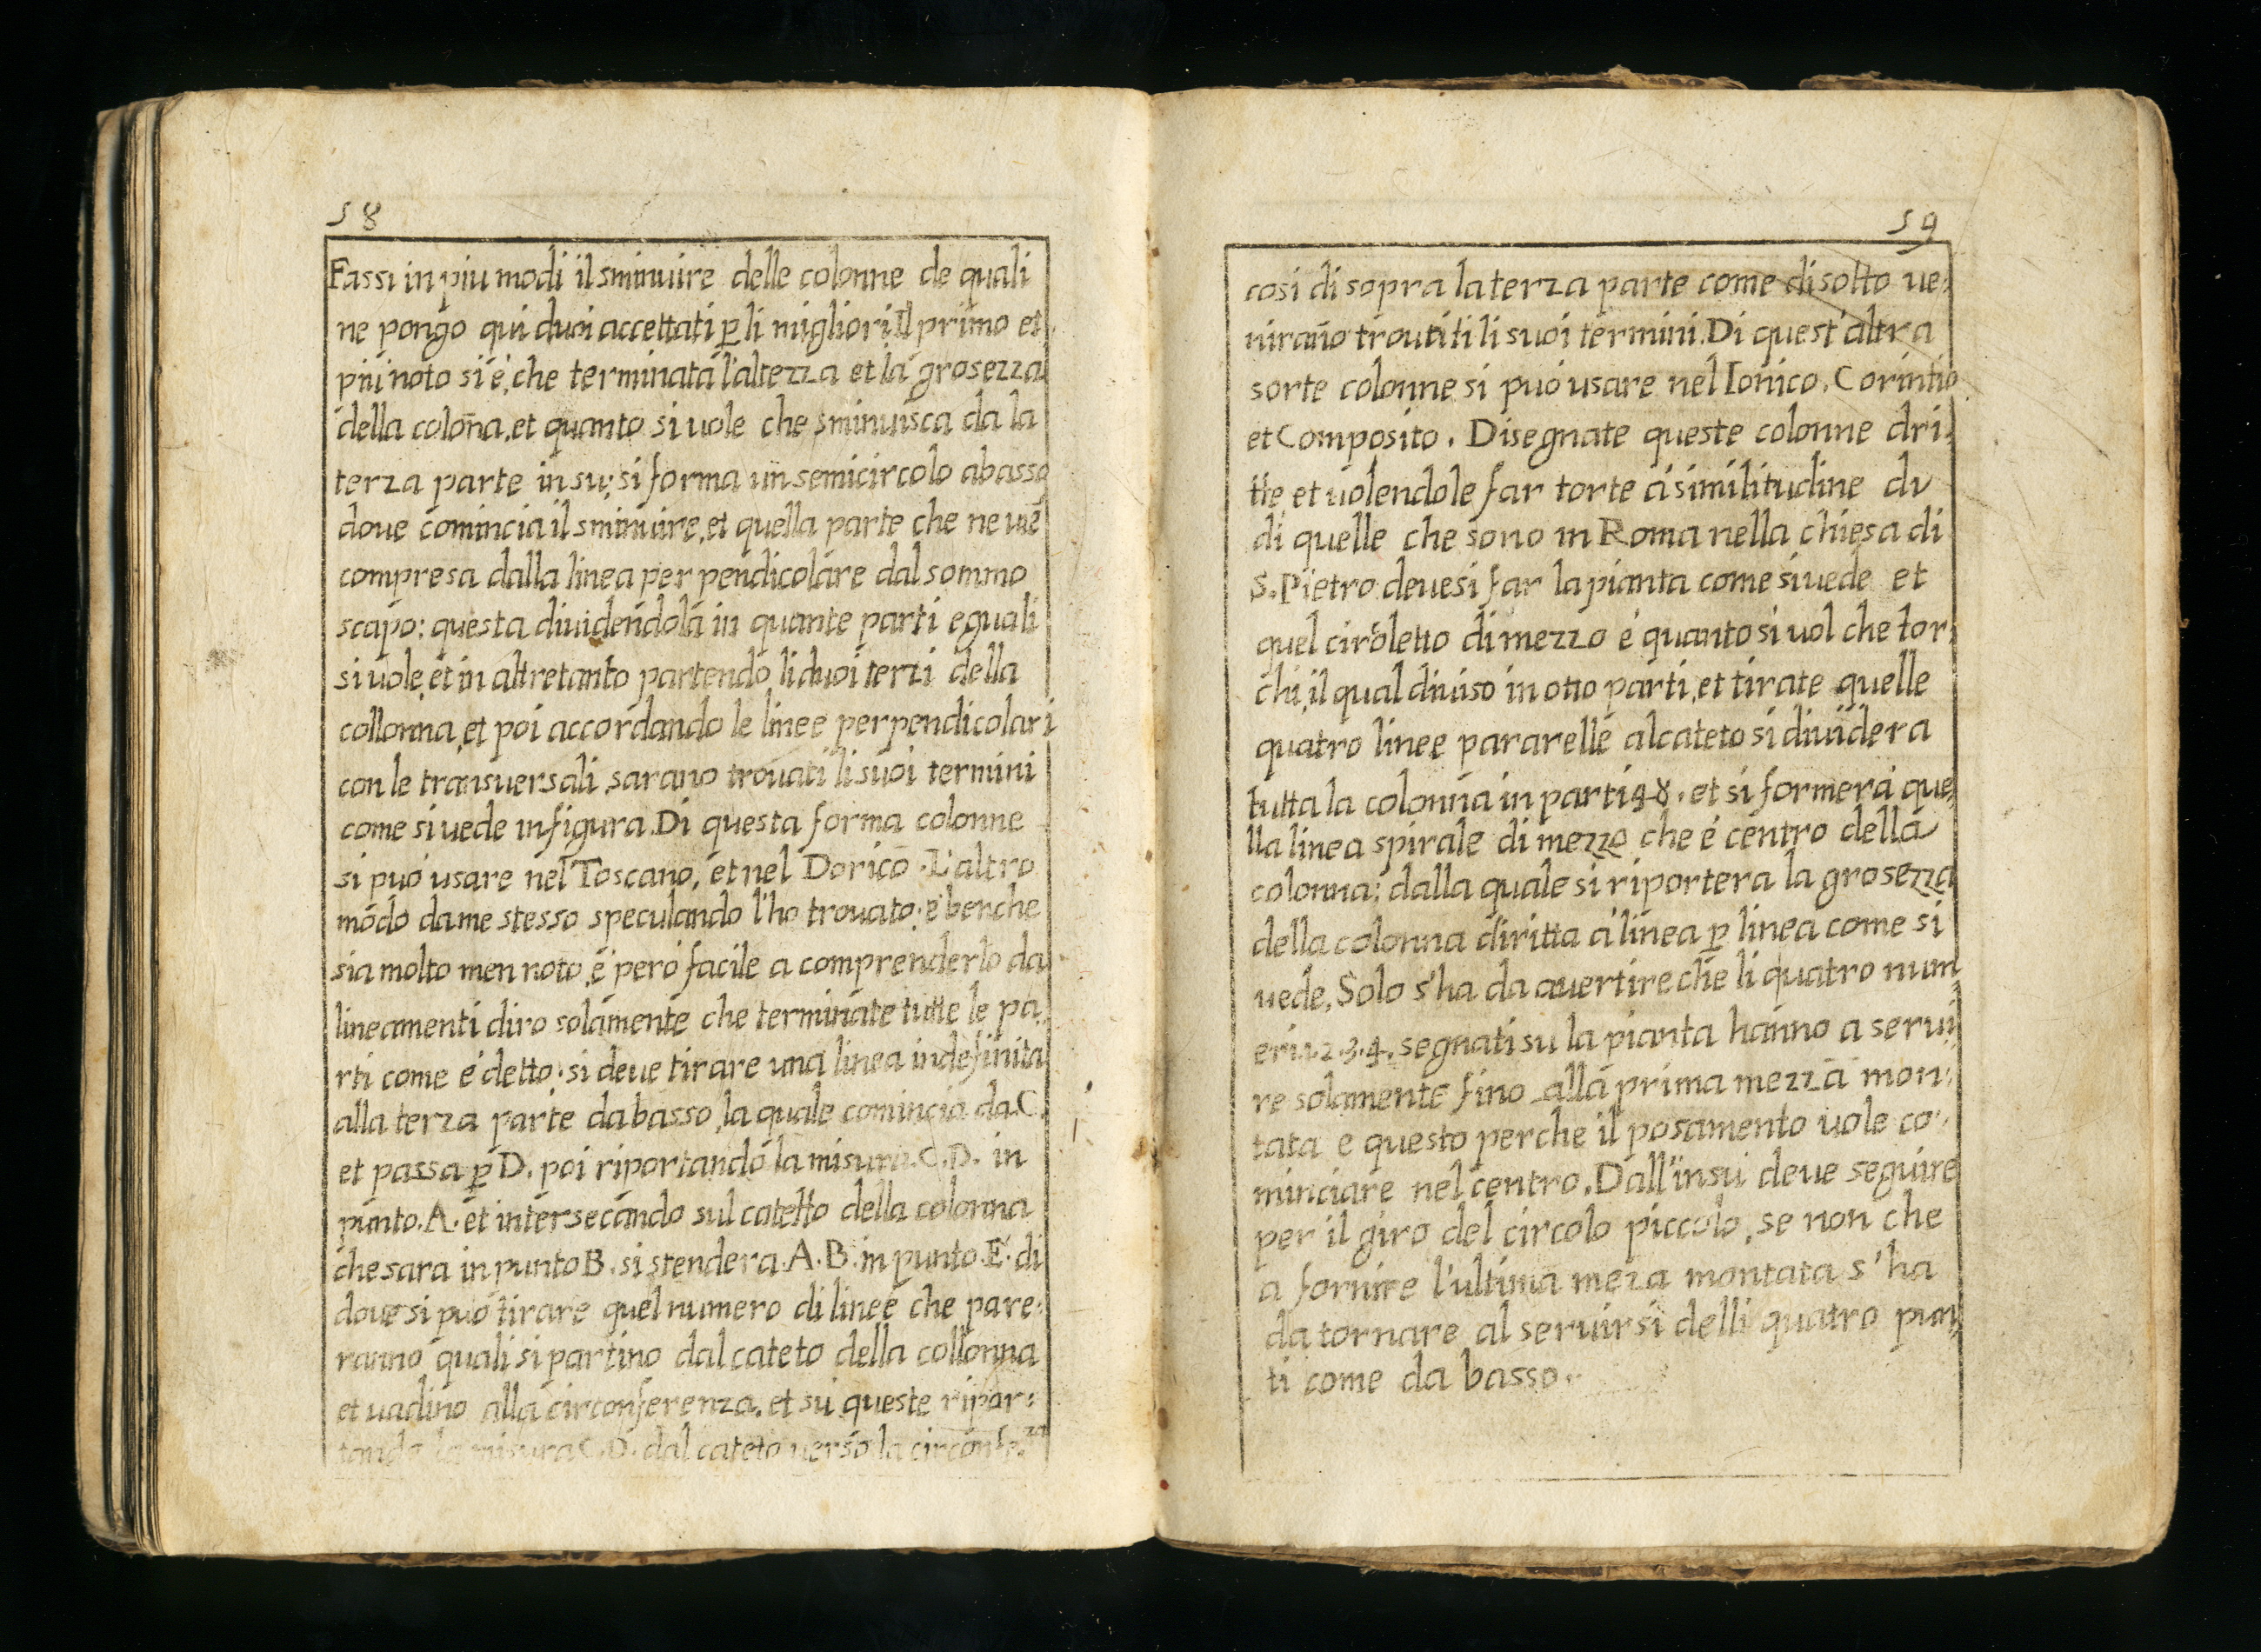 58
Fassi in piu modi il sminuire delle colonne de quali
ne pongo qui duoi accettati p̱ li migliori Il primo et
piu noto si é, che terminata l'altezza et la grosezza
della coloña, et quanto si uole che sminuisca da la
terza parte in su; si forma un semicircolo abasso
doue comincia il sminuire, et quella parte che ne uiē
compresa dalla linea perpendicolare dal sommo
scapo: questa diuidendola in quante parti eguali
si uole, et in altretanto partendo li duoi terzi della
collonna, et poi accordando le linee perpendicolari
con le transuersali, sarano trouati li suoi termini
come si uede in figura. Di questa forma colonne
si puó usare nel Toscano, et nel Dorico. L'altro
modo da me stesso speculando l'ho trouato; e benche
sia molto men noto, é peró facile a comprenderlo da
lineamenti diro solamente che terminate tutte le pa,
rti come é detto; si deue tirare una linea indefinita
alla terza parte da basso, la quale comincia da. C.
et passa p̱ D. poi riportando la misura. C. D. in
punto. A. et intersecando sul catetto della colonna
che sara in punto B. si stendera. A. B. in punto. E. di
doue si puo tirare quel numero di linee che pare:
ranno quali si partino dal cateto della collonna
et uadino alla circonferenza, et su queste ripor:
tando la misura C. D. dal cateto uerso la circonfe.za
59
cosi di sopra la terza parte come di sotto ue,
nirāno trouati li suoi termini. Di quest'altra
sorte colonne si puó usare nel Ionico, Corintio
et Composito. Disegnate queste colonne dri,
tte, et uolendole far torte á similitudine di
di quelle che sono in Roma nella chiesa di
S. Pietro deuesi far la pianta come si uede et
quel circoletto di mezzo é quanto si uol che tor,
chi, il qual diuiso in otto parti, et tirate quelle
quatro linee pararelle al cateto si diuidera
tutta la colonna in parti 48. et si formerá que,
lla linea spirale di mezzo che é centro della
colonna; dalla quale si riportera la grosezza
della colonna diritta á linea p̱ linea come si
uede, Solo s'ha da auertire che li quatro num,
eri 1. 2. 3. 4. segnati su la pianta hanno a serui,
re solamente fino alla prima mezza mon:
tata e questo perche il posamento uole co:
minciare nel centro. Dall'insu deue seguire
per il giro del circolo piccolo, se non che
a fornire l'ultima meza montata s'ha
da tornare al seruirsi delli quatro pun,
ti come da basso.